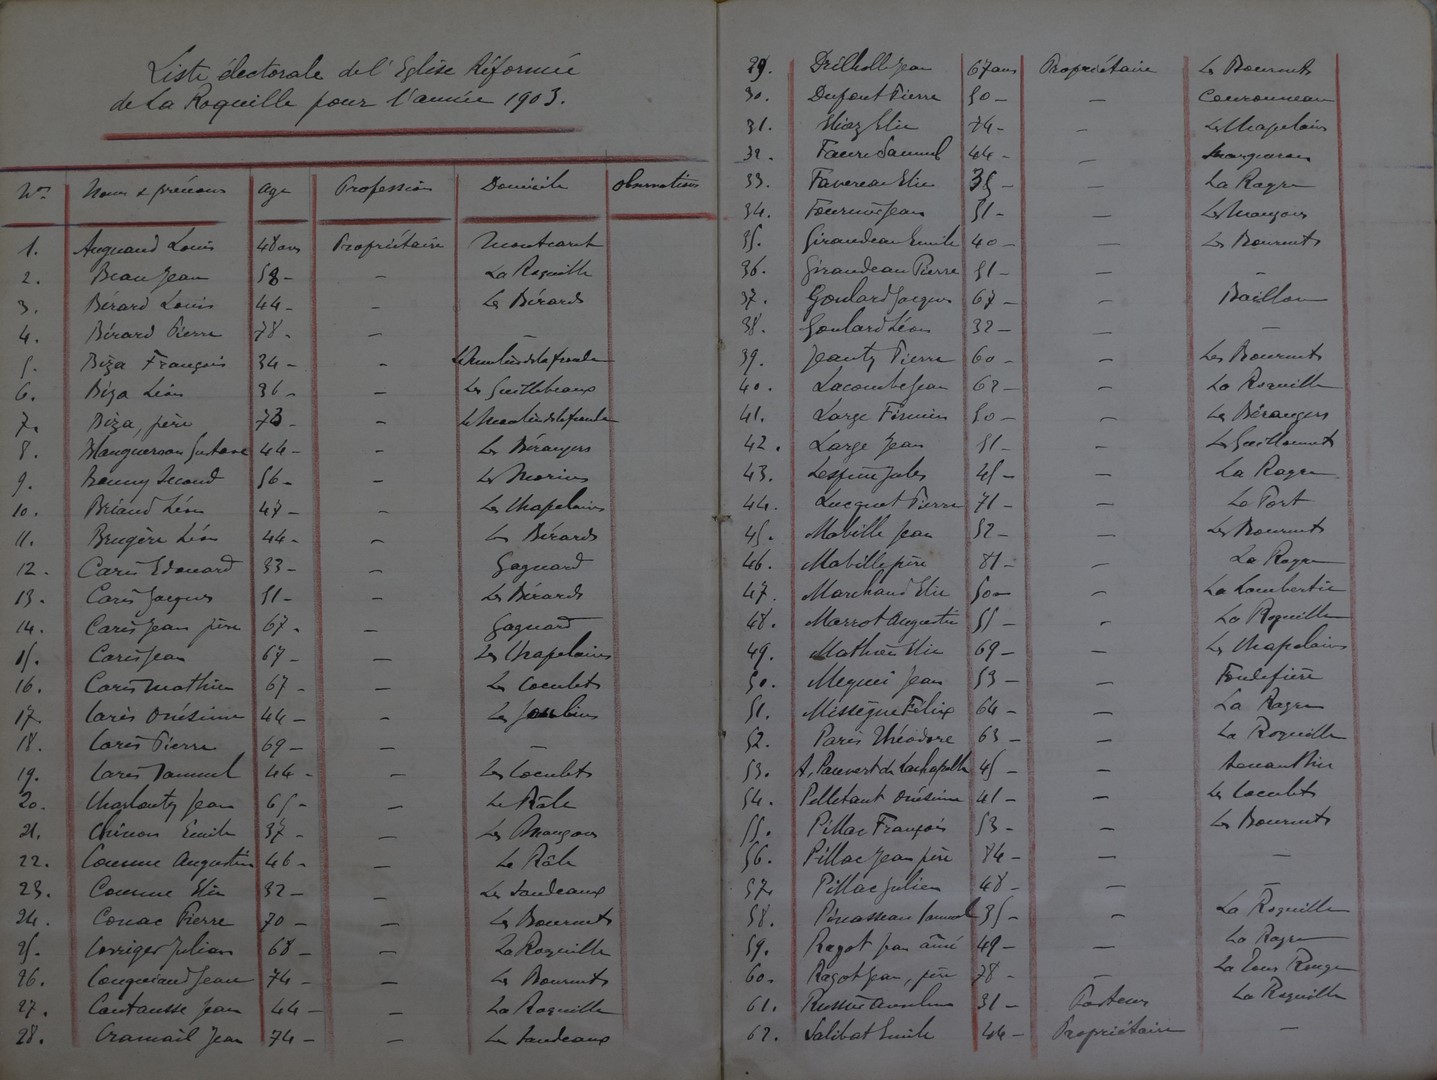 Liste électorale de l'Eglise Réformée
de La Roquille pour l'année 1903.
Nos Noms & prénoms age Profession Domicile Observations
1. Augnand Louis 48 ans Propriétaire Montcaret
2. Beau Jean 58 - - La Roquille
3. Berard Louis 44 - - Les Bérards
4. Bérard Pierre 78 - - -
5. Biza François 34 - -
6. Biza Léon 36 - - Les Guillebeaux
7. Biza, père 73 - -
8. Gustave 44 - - Les Bérangers
9. Bonny Second 56 - - Les Morins
10. Briand Léon 47 - - Les Chapelains
11. Brugère Léon 44 - - Les Bérards
12. Caris Edouard 33 - - Gagnard
13. Caris Jacques 51 - - Les Bérards
14. Caris Jean père 67 - - Gagnard
15. Caris Jean 67 - - Les Chapelains
16. Caris Mathieu 67 - - Les Coculets
17. Caris Onésime 44 - - Les
18. Caris Pierre 69 - - -
19. Caris Samuel 44 - - Les Coculets
20. Charlouty Jean 65 - - Le Râle
21. Chinon Emile 37 - - Les Mangons
22. Coume Augustin 46 - - Le Râle
23. Coume Elie 32 - - Les Jaudeaux
24. Conac Pierre 70 - - Les Bournets
25. Corriger Julien 68 - - La Roquille
26. Couquiaud Jean 74 - - Les Bournets
27. Coutausse Jean 44 - - La Roquille
28. Cramail Jean 74 - - Les Jaudeaux
29. Drilholle Jean 67 ans Propriétaire Les Bournets
30. Dupont Pierre 50 - - Couronneau
31. Eliaz Elie 74 - - Les Chapelains
32. Faure Samuel 44 - -
33. Favereau Elie 35 - - La Rayre
34. Fournié Jean 51 - - Les Mangons
35. Giraudeau Emile 40 - - Les Bournets
36. Giraudeau Pierre 51 - - -
37. Goulard Jacques 67 - - Baillou
38. Goulard Léon 32 - - -
39. Jeanty Pierre 60 - - Les Bournets
40. Lacombe Jean 62 - - La Roquille
41. Large Firmin 50 - - Les Bérangers
42. Large Jean 51 - - Les Guillonnets
43. Lespine Jules 45 - - La Rayre
44. Lucquet Pierre 71 - - Le Port
45. Mabille Jean 52 - - Les Bournets
46. Mabille père 81 - - La Rayre
47. Marchand Elie 50 - - La Lambertie
48. Marrot Augustin 55 - - La Roquille
49. Mathieu Elie 69 - - Les Chapelains
50. Meynei Jean 53 - - Foulefière
51. Missègue Félix 64 - - La Rayre
52. Paris Théodore 63 - - La Roquille
53. A. Pauvert de Lachapelle 45 - -
54. Pelletant Onésime 41 - - Les Coculets
55. Pillac François 53 - - Les Bournets
56. Pillac Jean père 84 - - -
57. Pillac Julien 48 - - -
58. Pinasseau Samuel 35 - - La Roquille
59. Ragot Jean aîné 49 - - La Rayre
60. Ragot Jean, père 78 - - La Tour Rouge
61. Russié Anselme 31 - Pasteur La Roquille
62. Salibat Emile 44 - Propriétaire -